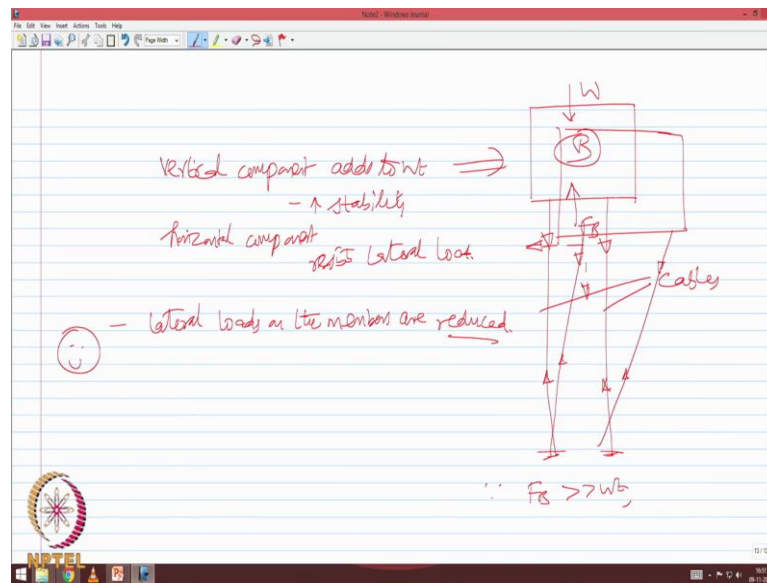 Note2 - Windows Journal
File Edit View Insert Actions Tools Help
Page Width
W
B
vertical component adds to wt
- ↑ stability
FB
horizontal component
resist lateral load.
Cables
- lateral loads on the members are reduced.
∵ FB >> Wt,
NPTEL
13/13